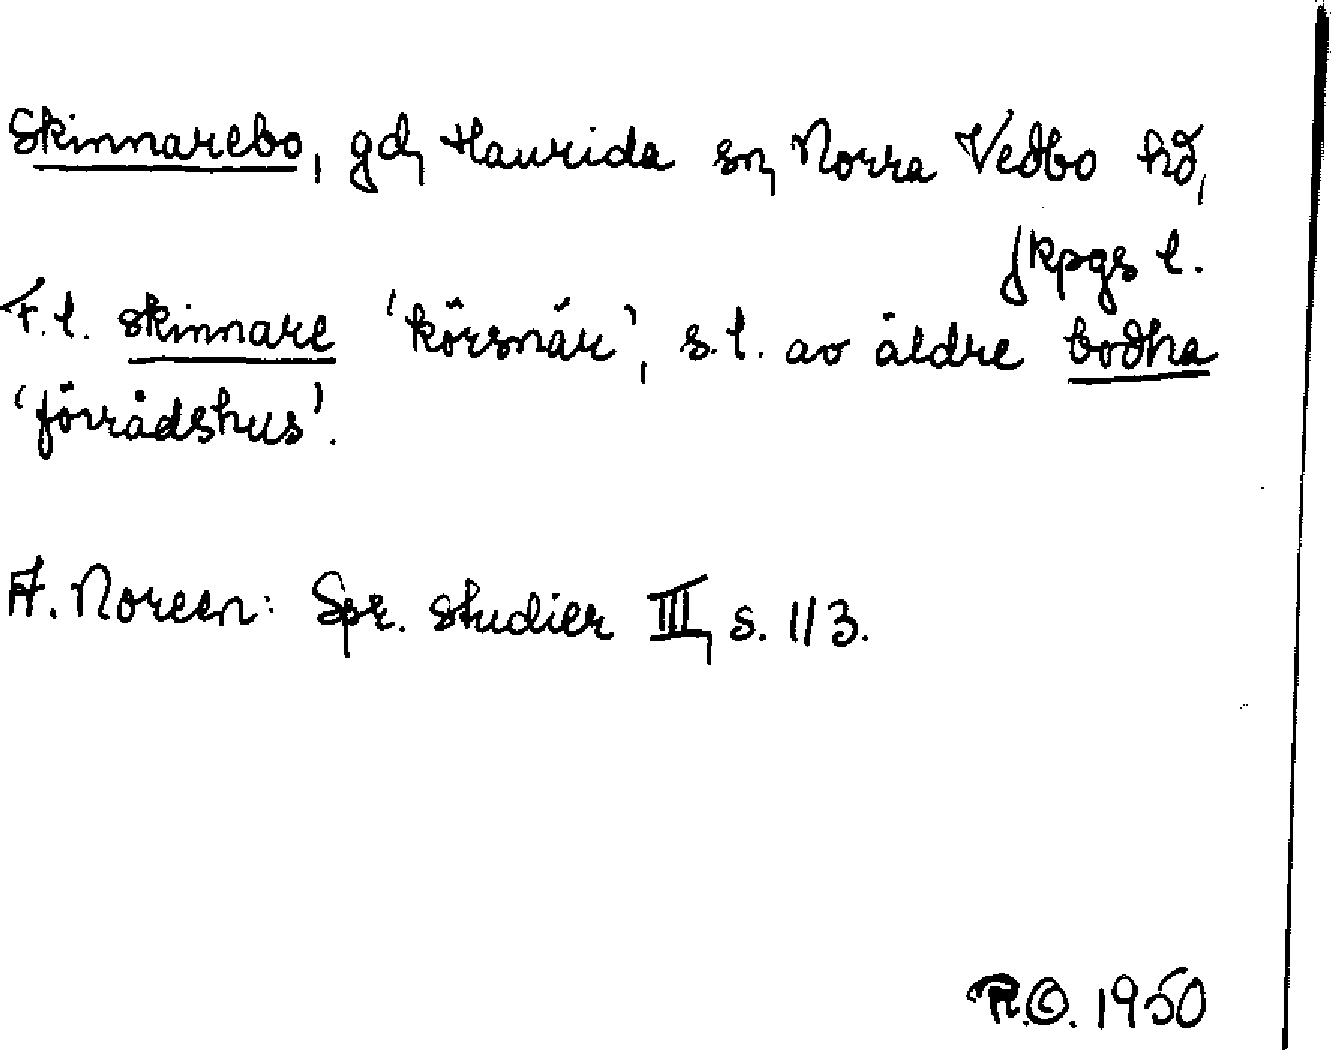 Skinnarebo, gd, Haurida sn, Norra Vedbo hd,
Jkpgs l.
F.l. skinnare 'körsnär', s.l. av äldre bodha
'förrådshus'.
A. Noreen: Spr. studier III, s. 113.
R.O. 1950